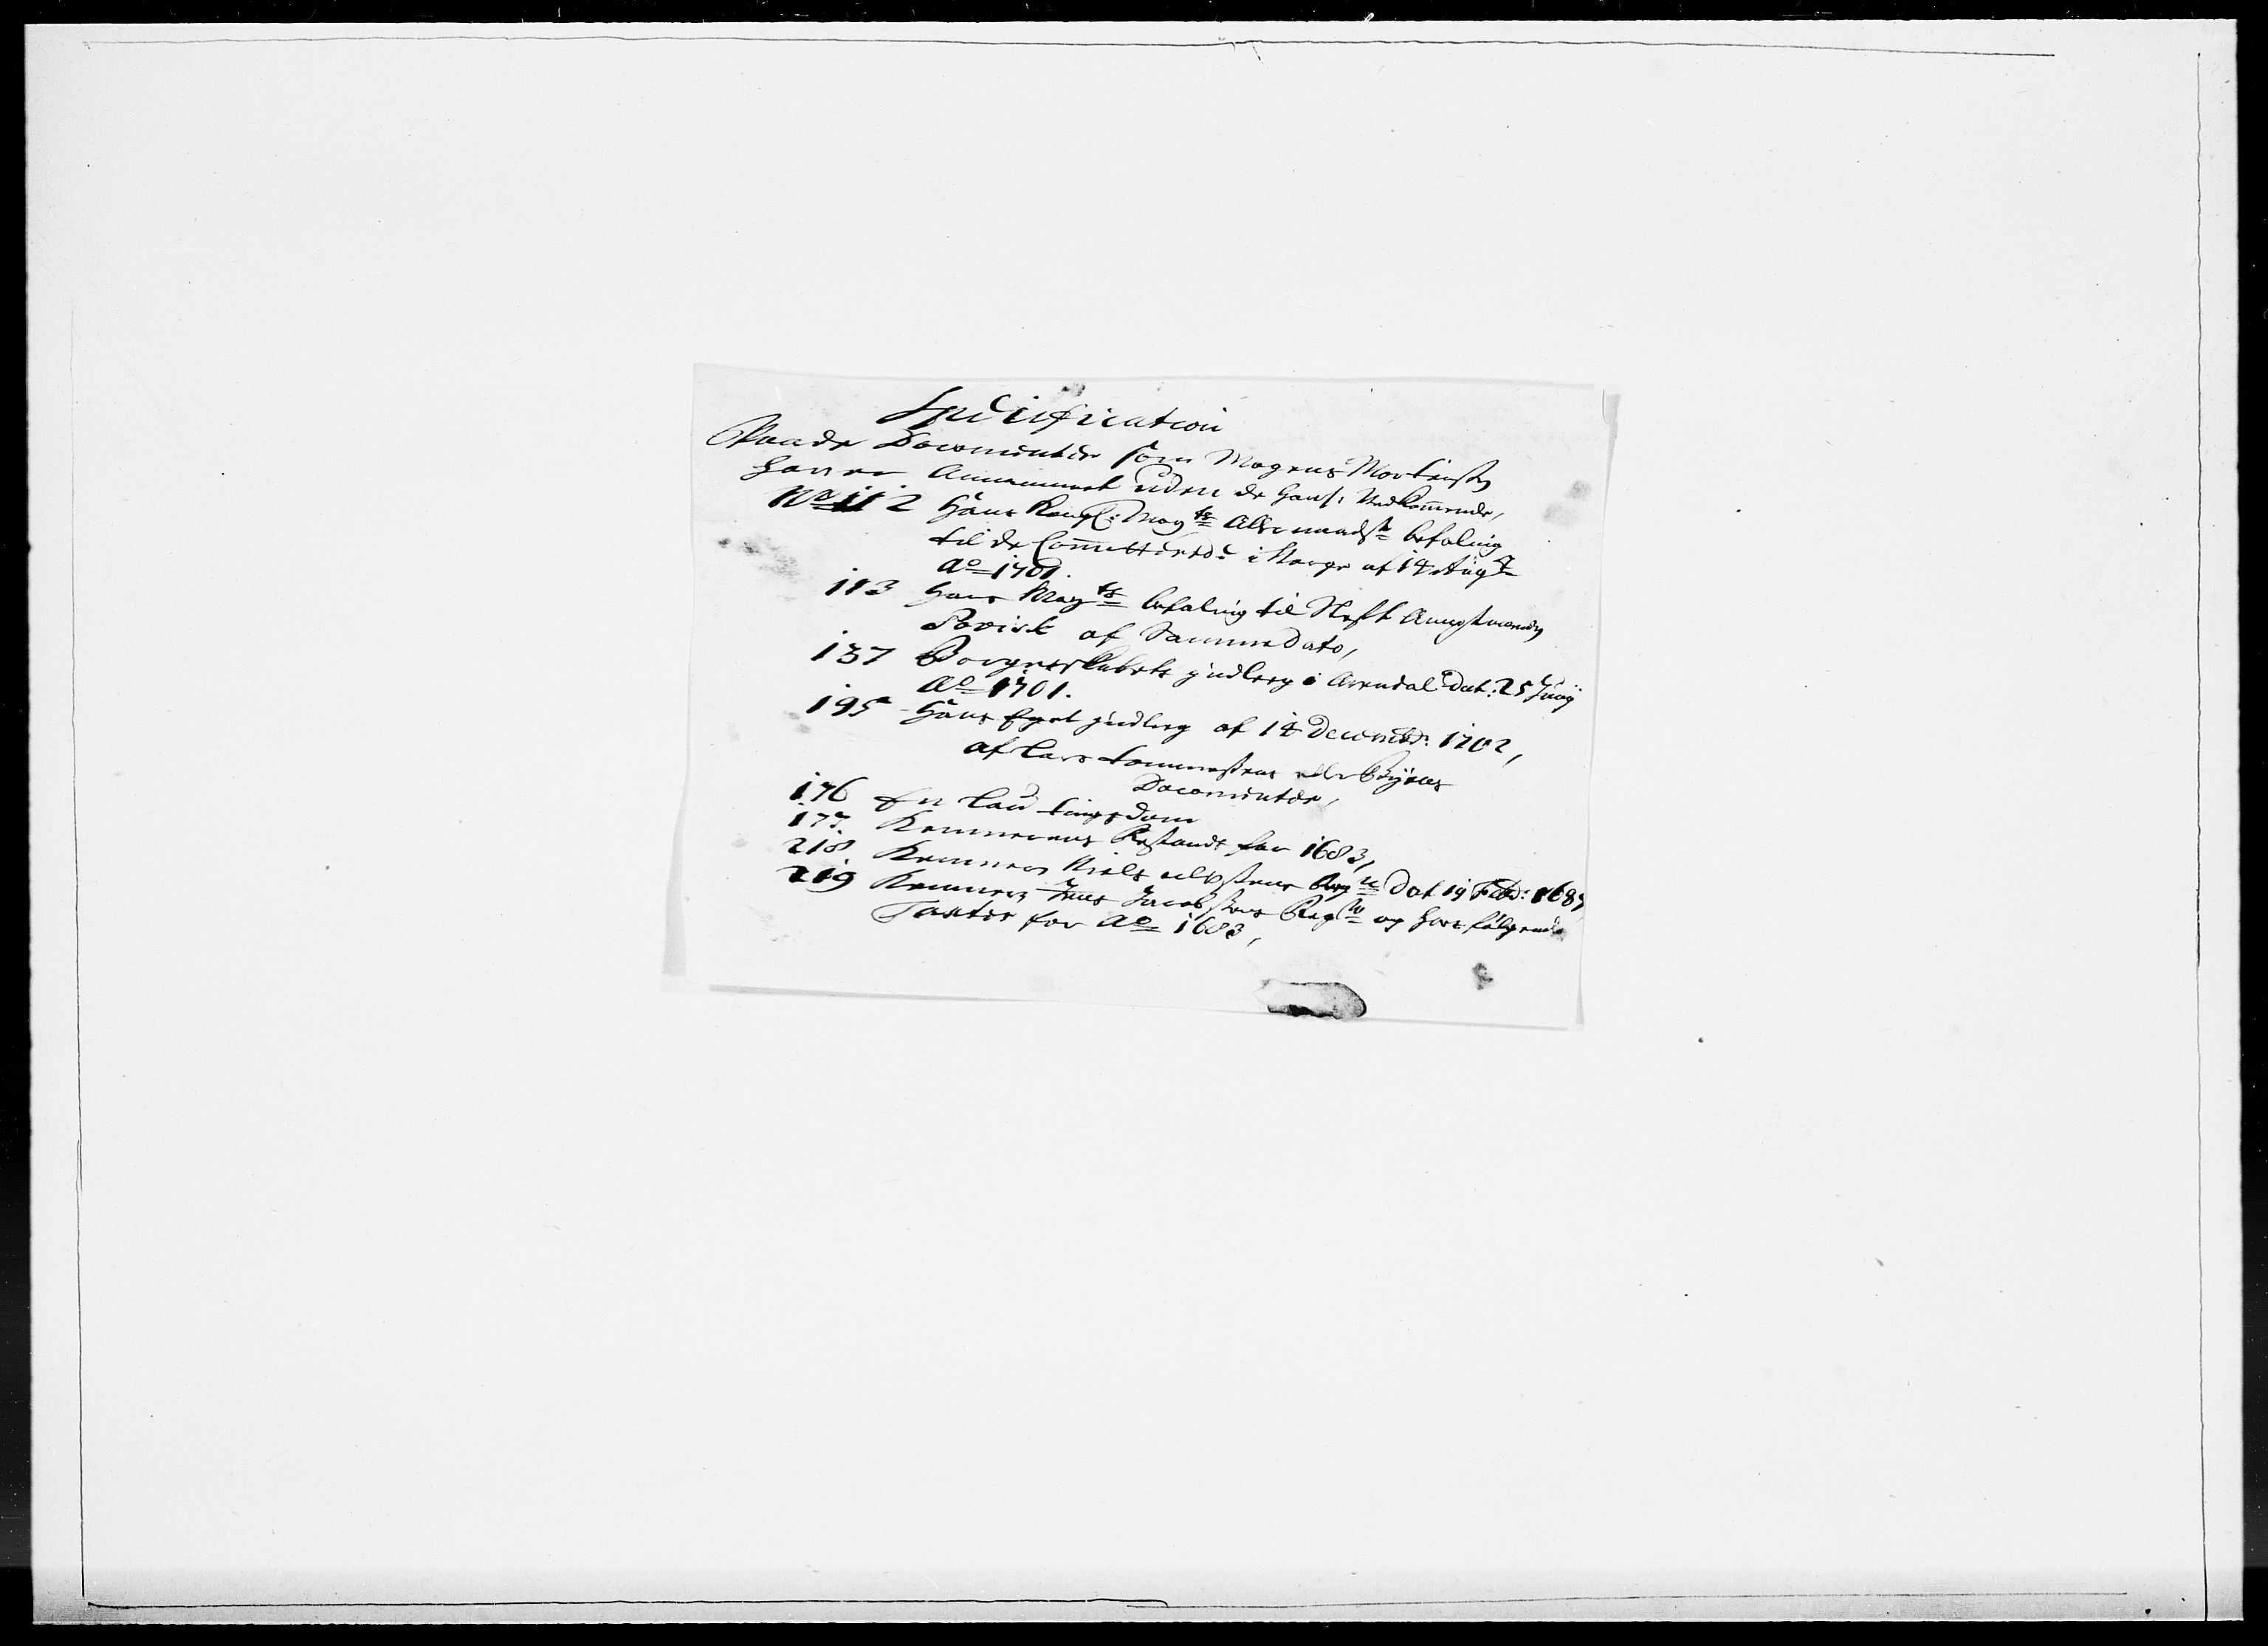 Specification
Paa de Documenter som Mogens Mortensen
haver Annammet uden de hans: Vedkommende,
No 112 Hans Kongl: Mayts Allernaadste befaling
til de Committerede i Norge af 14 Augst
Ao 1701.
113 Hans Mayts befaling til Stift Amptmanden
af Samme Dato,
137 Borgerskabets indleg i Arendal Dat: 25 Junij
Ao 1701.
195 Hans Eget indleg af 14 Decembr: 1702,
af Lars Tommesens eller Byens
Documenter,
176 En Lau tings dom
177. Kemnerens Restands for 1683,
218 Kemner Niels Dat 19 Febr: 168
219 Kemner Jens Jacobsens Regn og hos følgende
Taxter for Ao 1683,